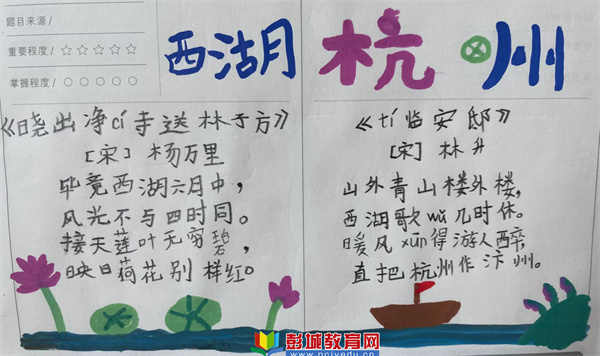 题目来源/
重要程度/☆☆☆☆☆
掌握程度/○○○○○
西湖
杭州
《晓出净cí寺送林子方》
[宋]杨万里
毕竟西湖六月中，
风光不与四时同。
接天莲叶无穷碧，
映日荷花别样红。
《tí临安邸》
[宋]林升
山外青山楼外楼，
西湖歌wǔ几时休。
暖风xūn得游人醉，
直把杭州作汴州。
彭城教育网
www.pcjyedu.cn